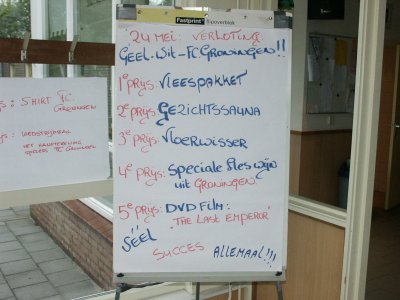 Fastprint flipoverblok
"24 MEI: VERLOTING
GEEL-WIT - FC GRONINGEN!!
1e PRYS: VLEESPAKKET
2e PRYS: GEZICHTSSAUNA
3e PRYS: VLOERWISSER
4e PRYS: SPECIALE FLES WIJN
UIT GRONINGEN.
5e PRYS: DVD FILM:
'THE LAST EMPEROR'
SUCCES ALLEMAAL!!!
SHIRT FC
GRONINGEN
WEDSTRIJDBAL
MET HANDTEKENING
SPELERS FC GRONINGEN